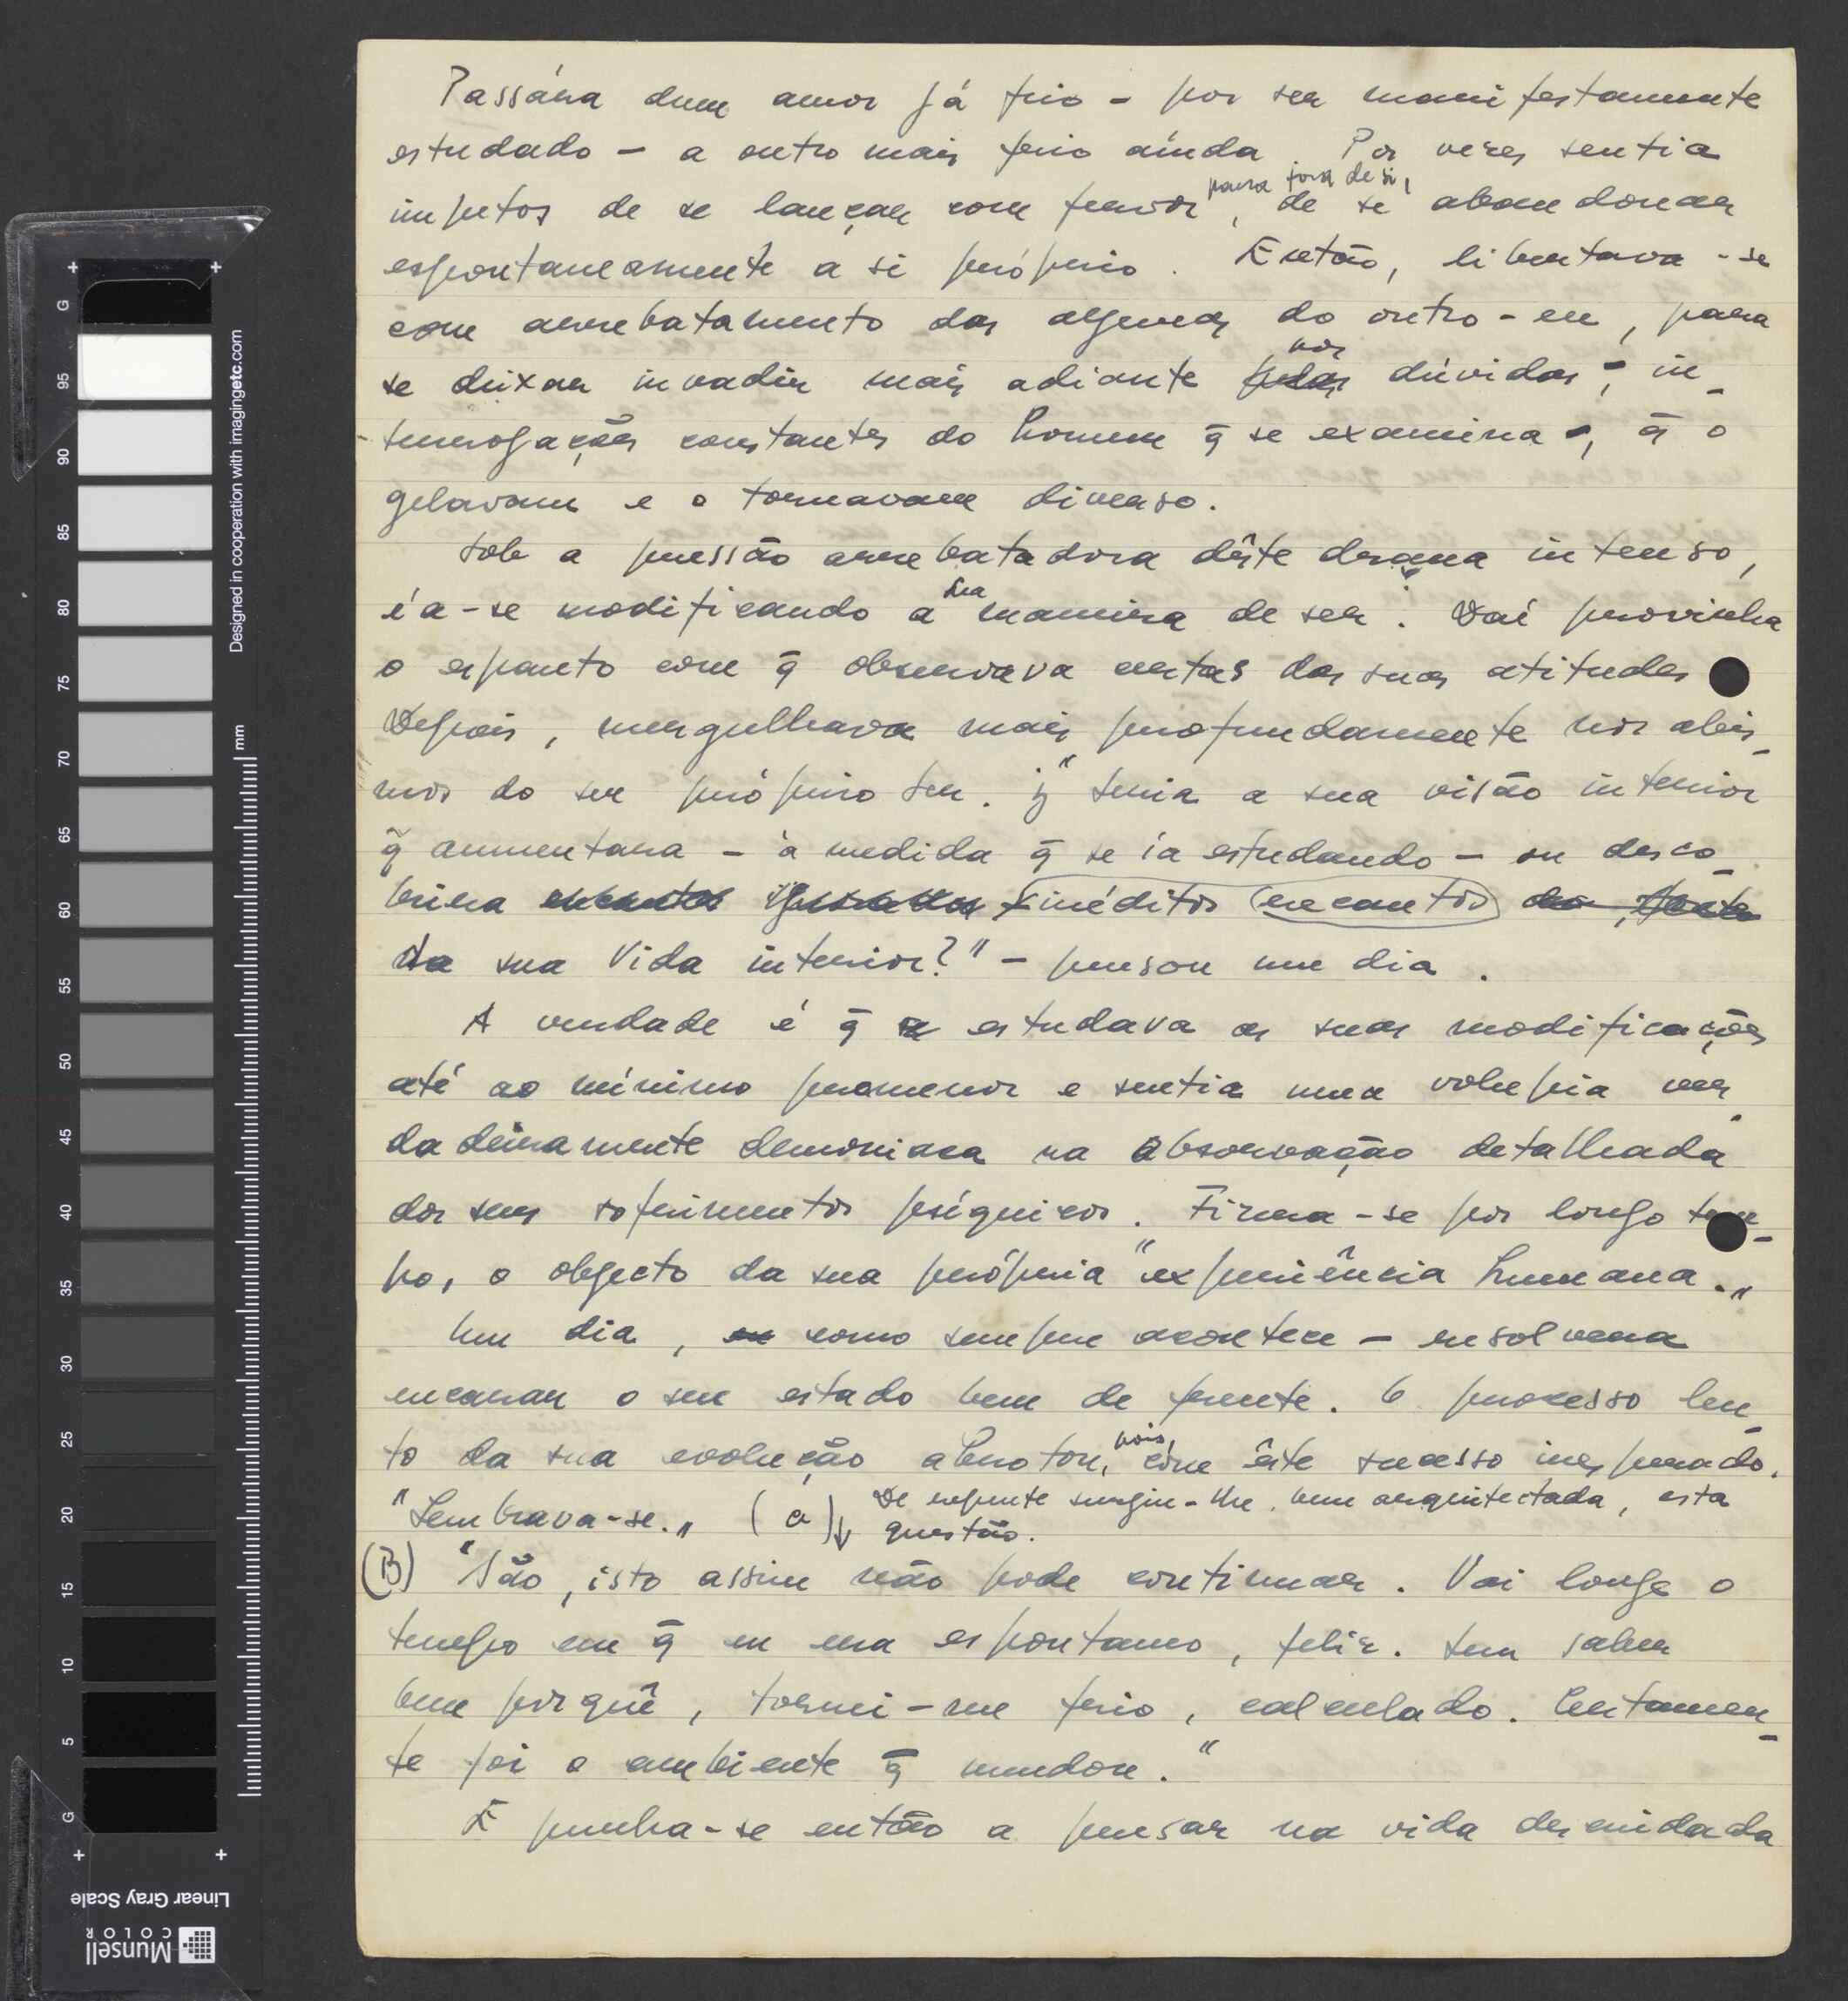 Passára dum amor já frio - por ser manifestamente
estudado - a outro mais frio aínda Por vezes sentia
para fora de si,
impetos de se lançar com fervor, de se abandonar
espontaneamente a si próprio. Então, libertava-se
com arrebatamento das algemas do outro-eu, para
nas
se deixar invadir mais adiante pelas dúvidas; in-
-terrogações constantes do homem q̄ se examina -, q̄ o
gelavam e o tornavam diverso.
Sob a pressão arrebatadora dêste drama intenso,
sua
ía-se modificando a maneira de ser. Daí provinha
o espanto com q̄ observava certas das suas atitudes
Depois, mergulhava mais profundamente nos abis-
mos do seu próprio Ser. "Seria a sua visão interior
q̄ aumentara - à medida q̄ se ía estudando - ou desco-
brira encantos inéditos encantos da
da sua Vida interior?" - pensou um dia.
A verdade é q̄ estudava as suas modificações
até ao mínimo promenor e sentia uma volupia ver-
dadeiramente demoniaca na observação detalhada
dos seus sofrimentos psíquicos. Fizera-se por longo tem-
po, o objecto da sua própria "experiência humana."
Um dia, como sempre acontece - resolvera
encarar o seu estado bem de frente. O processo len-
pois,
to da sua evolução abortou, com êste sucesso inesperado.
"Lembrava-se." (a)↓ De repente surgiu-lhe, bem arquitectada, esta
questão.
(B) "Não, isto assim não pode continuar. Vai longe o
tempo em q̄ eu era espontaneo, feliz. Sem saber
bem porquê, tornei-me frio, calculado. Certamen-
te foi o ambiente q̄ mudou."
E punha-se então a pensar na vida descuidada
G
95
90
85
80
75
70
65
60
55
50
45
40
35
30
25
20
15
10
5
G
mm
Designed in cooperation with imagingetc.com
Linear Gray Scale
Munsell
COLOR